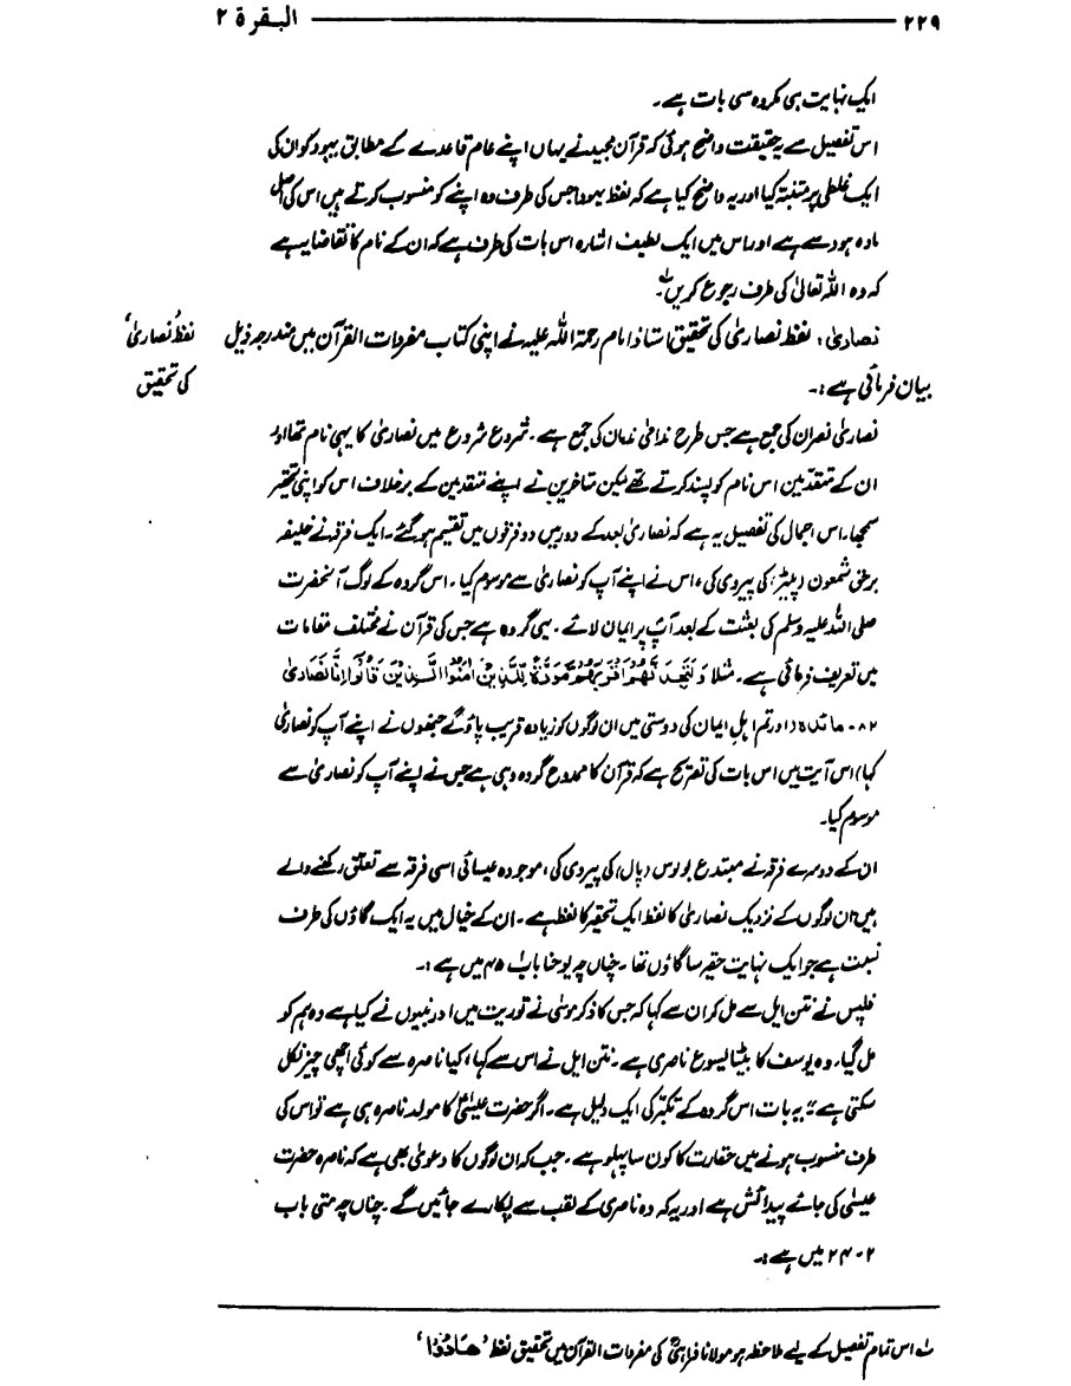 ۲۲۹ البقرة ۲
ایک نہایت ہی مکروہ سی بات ہے۔
اس تفصیل سے یہ حقیقت واضح ہوئی کہ قرآن مجید نے یہاں اپنے عام قاعدے کے مطابق یہود کو ان کی
ایک غلطی پر متنبہ کیا اور یہ واضح کیا ہے کہ لفظ یہود جس کی طرف وہ اپنے کو منسوب کرتے ہیں اس کی اصل
مادہ ہود سے ہے اور اس میں ایک لطیف اشارہ اس بات کی طرف ہے کہ ان کے نام کا تقاضا یہ ہے
کہ وہ اللہ تعالیٰ کی طرف رجوع کریں۔
نصاریٰ: لفظ نصاریٰ کی تحقیق استاذ امام رحمۃ اللہ علیہ نے اپنی کتاب مفردات القرآن میں مندرجہ ذیل
لفظ نصاریٰ'
بیان فرمائی ہے:۔
کی تحقیق
نصاریٰ نصران کی جمع ہے جس طرح ندامیٰ ندمان کی جمع ہے۔ شروع شروع میں نصاریٰ کا یہی نام تھا اور
ان کے متقدمین اس نام کو پسند کرتے تھے لیکن متاخرین نے اپنے متقدمین کے برخلاف اس کو اپنی تحقیر
سمجھا۔ اس اجمال کی تفصیل یہ ہے کہ نصاریٰ بعد کے دور میں دو فرقوں میں تقسیم ہو گئے۔ ایک فرقہ نے خلیفہ
برحق شمعون (پیٹر) کی پیروی کی، اس نے اپنے آپ کو نصاریٰ سے موسوم کیا۔ اس گروہ کے لوگ آنحضرت
صلی اللہ علیہ وسلم کی بعثت کے بعد آپ پر ایمان لائے۔ یہی گروہ ہے جس کی قرآن نے مختلف مقامات
میں تعریف فرمائی ہے۔ مثلا وَلَتَجِدَنَّ اَقْرَبَهُمْ مَّوَدَّةً لِّلَّذِينَ اٰمَنُوا الَّذِينَ قَالُوْا اِنَّا نَصَارىٰ
۸۲۔ مائدہ (اور تم اہل ایمان کی دوستی میں ان لوگوں کو زیادہ قریب پاؤ گے جنھوں نے اپنے آپ کو نصاریٰ
کہا) اس آیت میں اس بات کی تصریح ہے کہ قرآن کا ممدوح گروہ وہی ہے جس نے اپنے آپ کو نصاریٰ سے
موسوم کیا۔
ان کے دوسرے فرقہ نے مبتدع پولوس (پال) کی پیروی کی، موجودہ عیسائی اسی فرقہ سے تعلق رکھنے والے
ہیں ان لوگوں کے نزدیک نصاریٰ کا لفظ ایک تحقیر کا لفظ ہے۔ ان کے خیال میں یہ ایک گاؤں کی طرف
نسبت ہے جو ایک نہایت حقیر سا گاؤں تھا۔ چناں چہ یوحنا باب ۴۵ میں ہے:۔
فلپس نے نتن ایل سے مل کر ان سے کہا کہ جس کا ذکر موسیٰ نے توریت میں اور نبیوں نے کیا ہے وہ ہم کو
مل گیا۔ وہ یوسف کا بیٹا یسوع ناصری ہے۔ نتن ایل نے اس سے کہا، کیا ناصرہ سے کوئی اچھی چیز نکل
سکتی ہے" یہ بات اس گروہ کے تکبر کی ایک دلیل ہے۔ اگر حضرت عیسیٰؑ کا مولد ناصرہ ہی ہے تو اس کی
طرف منسوب ہونے میں حقارت کا کون سا پہلو ہے۔ جب کہ ان لوگوں کا دعویٰ بھی ہے کہ ناصرہ حضرت
عیسیٰ کی جائے پیدائش ہے اور یہ کہ وہ ناصری کے لقب سے پکارے جائیں گے۔ چناں چہ متی باب
۲-۲۳ میں ہے:۔
لہ اس تمام تفصیل کے لیے ملاحظہ ہو مولانا فراہیؒ کی مفردات القرآن میں تحقیق لفظ 'هَادُوْا'